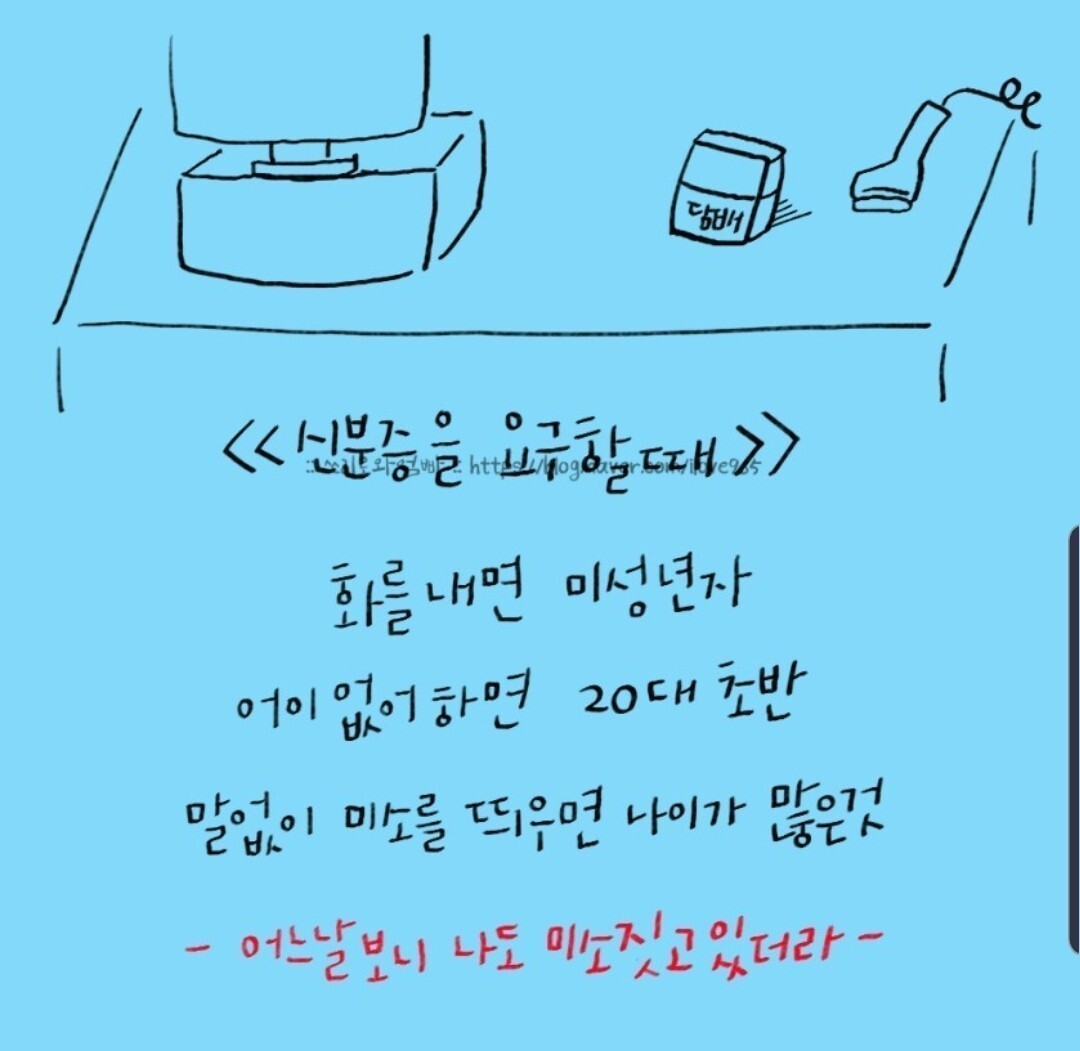 담배
<<신분증을 요구할때>>
https://blog.naver.com/ilove985
화를내면 미성년자
어이없어하면 20대 초반
말없이 미소를 띄우면 나이가 많은것
- 어느날보니 나도 미소짓고있더라 -